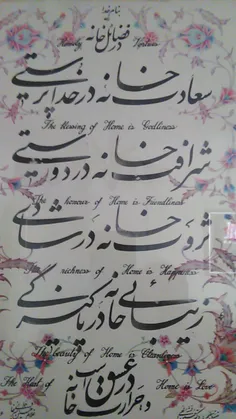 بنام خدا
در فضایل خانه
Homely Virtues
سعادت خانه در خداپرستی
The blessing of Home is Godliness
شرافت خانه در دوستی
The honour of Home is Friendliness
ثروت خانه در شادی
The richness of Home is Happiness
زیبایی خانه در پاکیزگی
The beauty of Home is Cleanliness
و حرارت خانه در عشق است
The Heat of Home is Love